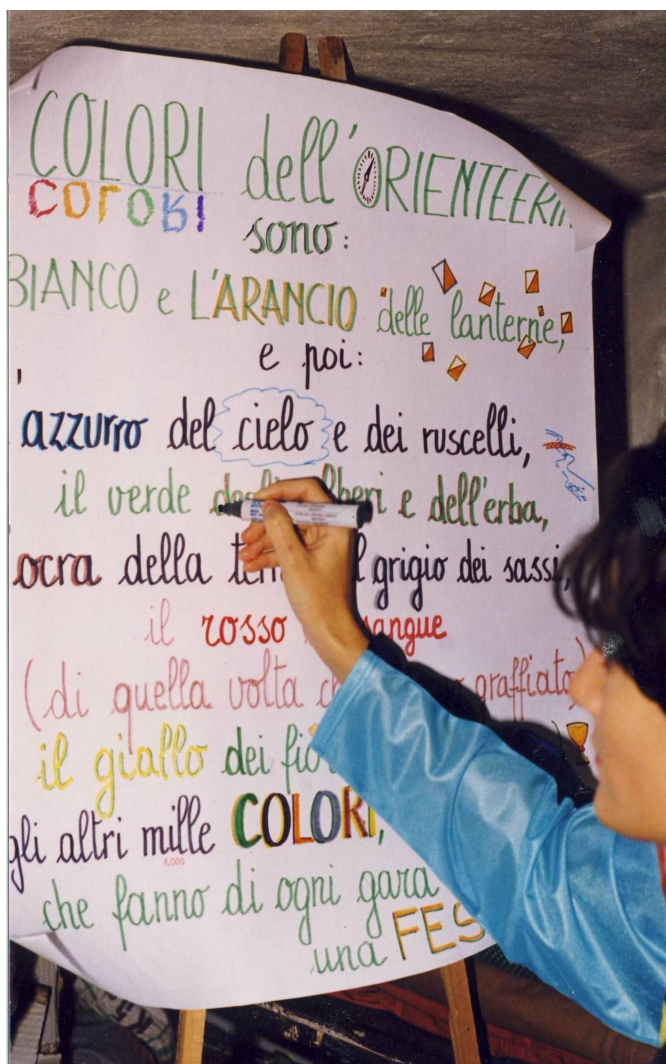 COLORI dell'ORIENTEERI
COLORI
sono:
BIANCO e L'ARANCIO delle lanterne,
e poi:
azzurro del cielo e dei ruscelli,
il verde degli alberi e dell'erba,
ocra della grigio dei sassi,
il rosso sangue
(di quella volta graffiato)
il giallo dei
gli altri mille COLORI,
1.000
che fanno di ogni gara
una FES